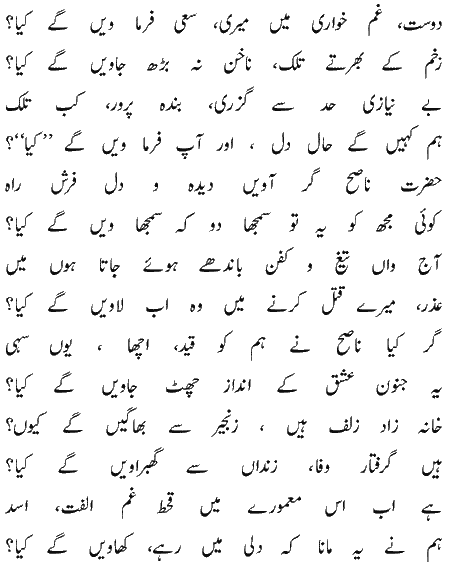 دوست، غم خواری میں میری، سعی فرما ویں گے کیا؟
زخم کے بھرتے تلک، ناخن نہ بڑھ جاویں گے کیا؟
بے نیازی حد سے گزری، بندہ پرور، کب تلک
ہم کہیں گے حال دل ، اور آپ فرما ویں گے ”کیا“؟
حضرت ناصح گر آویں دیدہ و دل فرش راہ
کوئی مجھ کو یہ تو سمجھا دو کہ سمجھا ویں گے کیا؟
آج واں تیغ و کفن باندھے ہوئے جاتا ہوں میں
عذر، میرے قتل کرنے میں وہ اب لاویں گے کیا؟
گر کیا ناصح نے ہم کو قید، اچھا ، یوں سہی
یہ جنون عشق کے انداز چھٹ جاویں گے کیا؟
خانہ زاد زلف ہیں ، زنجیر سے بھاگیں گے کیوں؟
ہیں گرفتار وفا، زنداں سے گھبراویں گے کیا؟
ہے اب اس معمورے میں قحط غم الفت، اسد
ہم نے یہ مانا کہ دلی میں رہے، کھاویں گے کیا؟